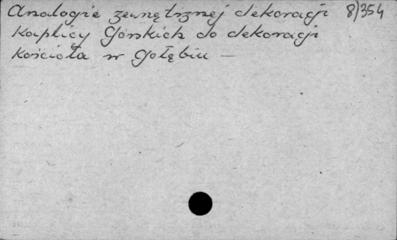 Analogie zewnętrznej dekoracji 8/354
kaplicy Górskich do dekoracji
kościoła w Gołębiu —